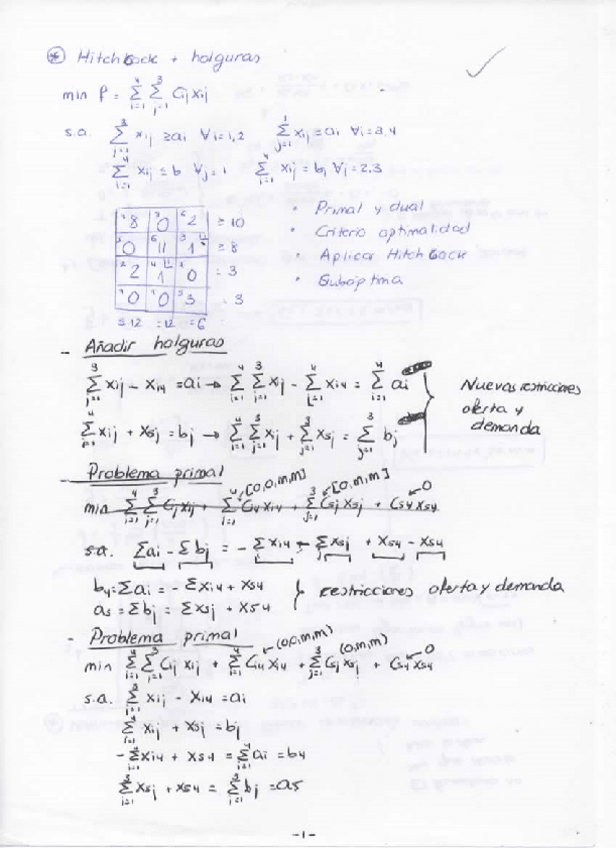 ⊛ Hitchback + holguras
min f = Σ_{i=1}^{4} Σ_{j=1}^{3} Cij xij
s.a. Σ_{j=1}^{3} xij ≥ ai ∀i=1,2 Σ_{j=1}^{3} xij = ai ∀i=3,4
Σ_{i=1}^{4} xij ≤ b ∀j=1 Σ_{i=1}^{4} xij = bj ∀j=2,3
8 0 2 ≥ 10
0 11 1 ≥ 8
2 1 0 = 3
0 0 3 = 3
≤12 =12 =6
• Primal y dual
• Criterio optimalidad
• Aplicar Hitchback
• Subóptima
- Añadir holguras
Σ_{j=1}^{3} xij - xi4 = ai → Σ_{i=1}^{4} Σ_{j=1}^{3} xij - Σ_{i=1}^{4} xi4 = Σ_{i=1}^{4} ai
Σ_{i=1}^{4} xij + x5j = bj → Σ_{i=1}^{4} Σ_{j=1}^{3} xij + Σ_{j=1}^{3} x5j = Σ_{j=1}^{3} bj
Nuevas restricciones
oferta y
demanda
- Problema primal
min Σ_{i=1}^{4} Σ_{j=1}^{3} Cij xij + Σ_{i=1}^{4} Ci4 xi4 + Σ_{j=1}^{3} C5j x5j + C54 x54
[0,0,m,m] [0,m,m] 0
s.a. Σai - Σbj = - Σxi4 - Σx5j + x54 - x54
b4 = Σai = - Σxi4 + x54
a5 = Σbj = Σx5j + x54
} restricciones oferta y demanda
- Problema primal
min Σ_{i=1}^{4} Σ_{j=1}^{3} Cij xij + Σ_{i=1}^{4} Ci4 xi4 + Σ_{j=1}^{3} C5j x5j + C54 x54
(0,0,m,m) (0,m,m) 0
s.a. Σ xij - xi4 = ai
Σ xij + x5j = bj
- Σ xi4 + x54 = Σ ai = b4
Σ x5j + x54 = Σ bj = a5
-1-